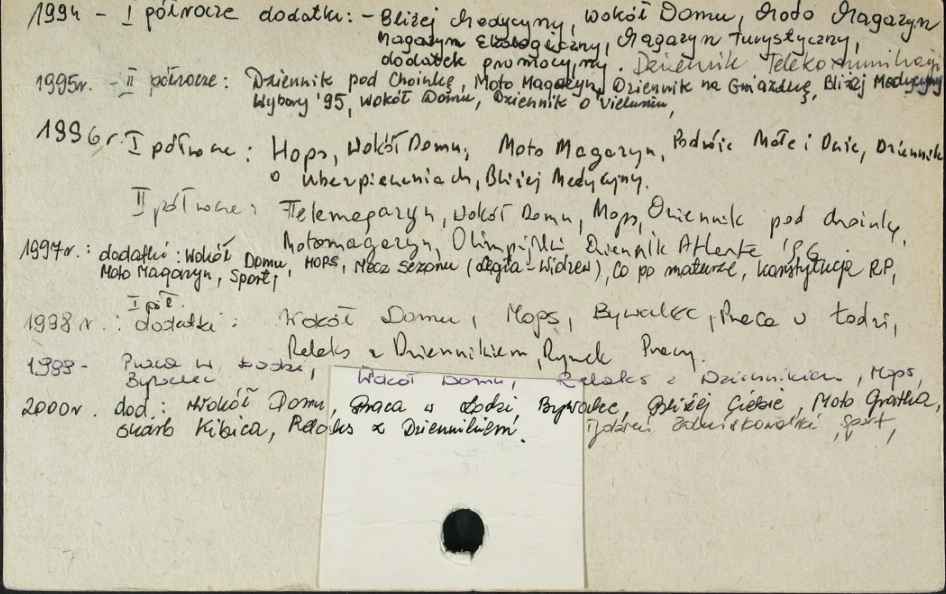 1994 - I półrocze dodatki: - Bliżej Medycyny, Wokół Domu, Moto Magazyn
Magazyn Ekologiczny, Magazyn Turystyczny,
dodatek promocyjny. Dziennik Telekomunikacji
1995r. - II półrocze: Dziennik pod Choinkę, Moto Magazyn, Dziennik na Gwiazdkę, Bliżej Medycyny
Wybory '95, Wokół Domu, Dziennik o Vielumiu,
1996r. I półrocze: Hops, Wokół Domu, Moto Magazyn, Podróże Małe i Duże, Dziennik
o Ubezpieczeniach, Bliżej Medycyny.
II półrocze: Telemagazyn, Wokół Domu, Mops, Dziennik pod choinkę,
Motomagazyn, Olimpijski Dziennik Atlanta '96
1997r.: dodatki: Wokół Domu, MOPS, Mecz sezonu (Legia-Widzew), Co po maturze, Konstytucja RP,
Moto Magazyn, Sport,
I pół.
1998r. dodatki: Wokół Domu, Mops, Bywalec, Praca w Łodzi,
Relaks z Dziennikiem, Rynek Pracy.
1999- Praca w Łodzi, Wokół Domu, Relaks z Dziennikiem, Mops,
Bywalec
2000r. dod.: Wokół Domu, Praca w Łodzi, Bywalec, Bliżej Ciebie, Moto Gratka,
Skarb Kibica, Relaks z Dziennikiem, Sport,